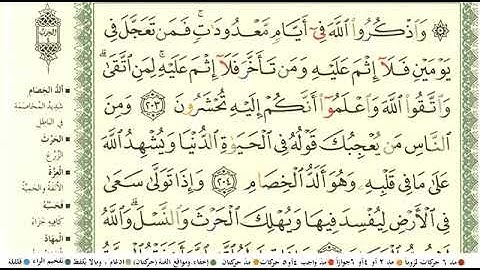 وَٱذْكُرُوا۟ ٱللَّهَ فِىٓ أَيَّامٍ مَّعْدُودَٰتٍ ۚ فَمَن تَعَجَّلَ فِى
يَوْمَيْنِ فَلَآ إِثْمَ عَلَيْهِ وَمَن تَأَخَّرَ فَلَآ إِثْمَ عَلَيْهِ ۚ لِمَنِ ٱتَّقَىٰ ۗ
وَٱتَّقُوا۟ ٱللَّهَ وَٱعْلَمُوٓا۟ أَنَّكُمْ إِلَيْهِ تُحْشَرُونَ ٢٠٣ وَمِنَ
ٱلنَّاسِ مَن يُعْجِبُكَ قَوْلُهُۥ فِى ٱلْحَيَوٰةِ ٱلدُّنْيَا وَيُشْهِدُ ٱللَّهَ
عَلَىٰ مَا فِى قَلْبِهِۦ وَهُوَ أَلَدُّ ٱلْخِصَامِ ٢٠٤ وَإِذَا تَوَلَّىٰ سَعَىٰ
فِى ٱلْأَرْضِ لِيُفْسِدَ فِيهَا وَيُهْلِكَ ٱلْحَرْثَ وَٱلنَّسْلَ ۗ وَٱللَّهُ
أَلَدُّ الخِصَامِ
شديد المخاصمة
في الباطل
الحَرْثَ
الزرع
العِزَّةُ
الأنفة والحمية
فَحَسْبُهُ
كافيه جزاء
المِهَادُ
مد ٦ حركات لزوما
مد ٢ أو ٤ أو ٦ جوازا
مد واجب ٤ أو ٥ حركات
مد حركتان
إخفاء، ومواقع الغنة (حركتان)
إدغام، وما لا يلفظ
تفخيم الراء
قلقلة